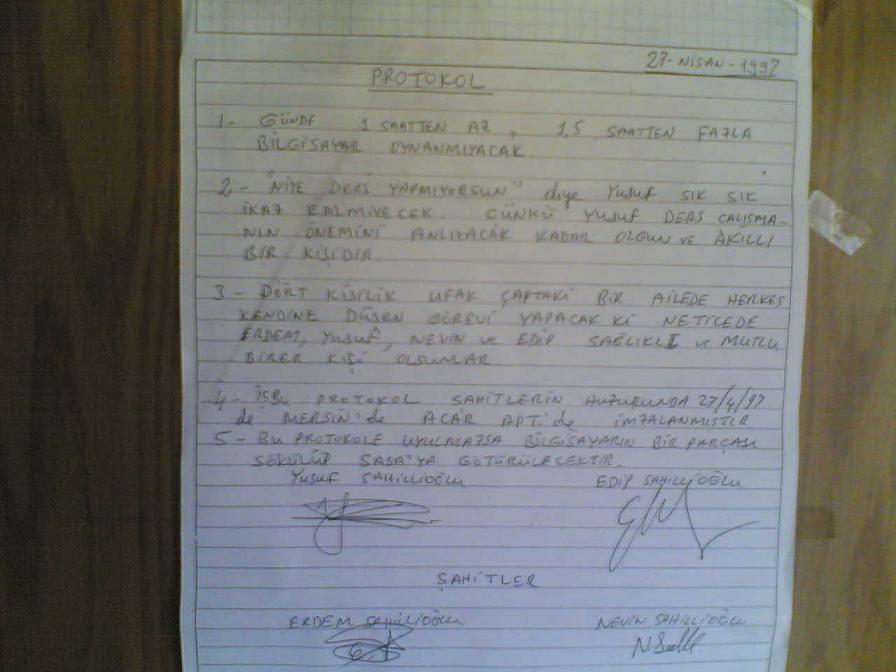 27-NİSAN-1997
PROTOKOL
1- GÜNDE 1 SAATTEN AZ, 1,5 SAATTEN FAZLA
BİLGİSAYAR OYNANMIYACAK.
2- "NİYE DERS YAPMIYORSUN" diye Yusuf SIK SIK
İKAZ EDİLMİYECEK. ÇÜNKÜ YUSUF DERS ÇALIŞMA-
NIN ÖNEMİNİ ANLIYACAK KADAR OLGUN VE AKILLI
BİR KİŞİDİR.
3- DÖRT KİŞİLİK UFAK ÇAPTAKİ BİR AİLEDE HERKES
KENDİNE DÜŞEN GÖREVİ YAPACAK Kİ NETİCEDE
ERDEM, Yusuf, NEVİN ve EDİP SAĞLIKLI ve MUTLU
BİRER KİŞİ OLSUNLAR.
4- İŞBU PROTOKOL ŞAHİTLERİN HUZURUNDA 27/4/97
de MERSİN'de ACAR APT.'de İMZALANMIŞTIR
5- BU PROTOKOLE UYULMAZSA BİLGİSAYARIN BİR PARÇASI
SÖKÜLÜP SASA'YA GÖTÜRÜLECEKTİR.
Yusuf SAHİLLİOĞLU EDİP SAHİLLİOĞLU
ŞAHİTLER
ERDEM SAHİLLİOĞLU NEVİN SAHİLLİOĞLU